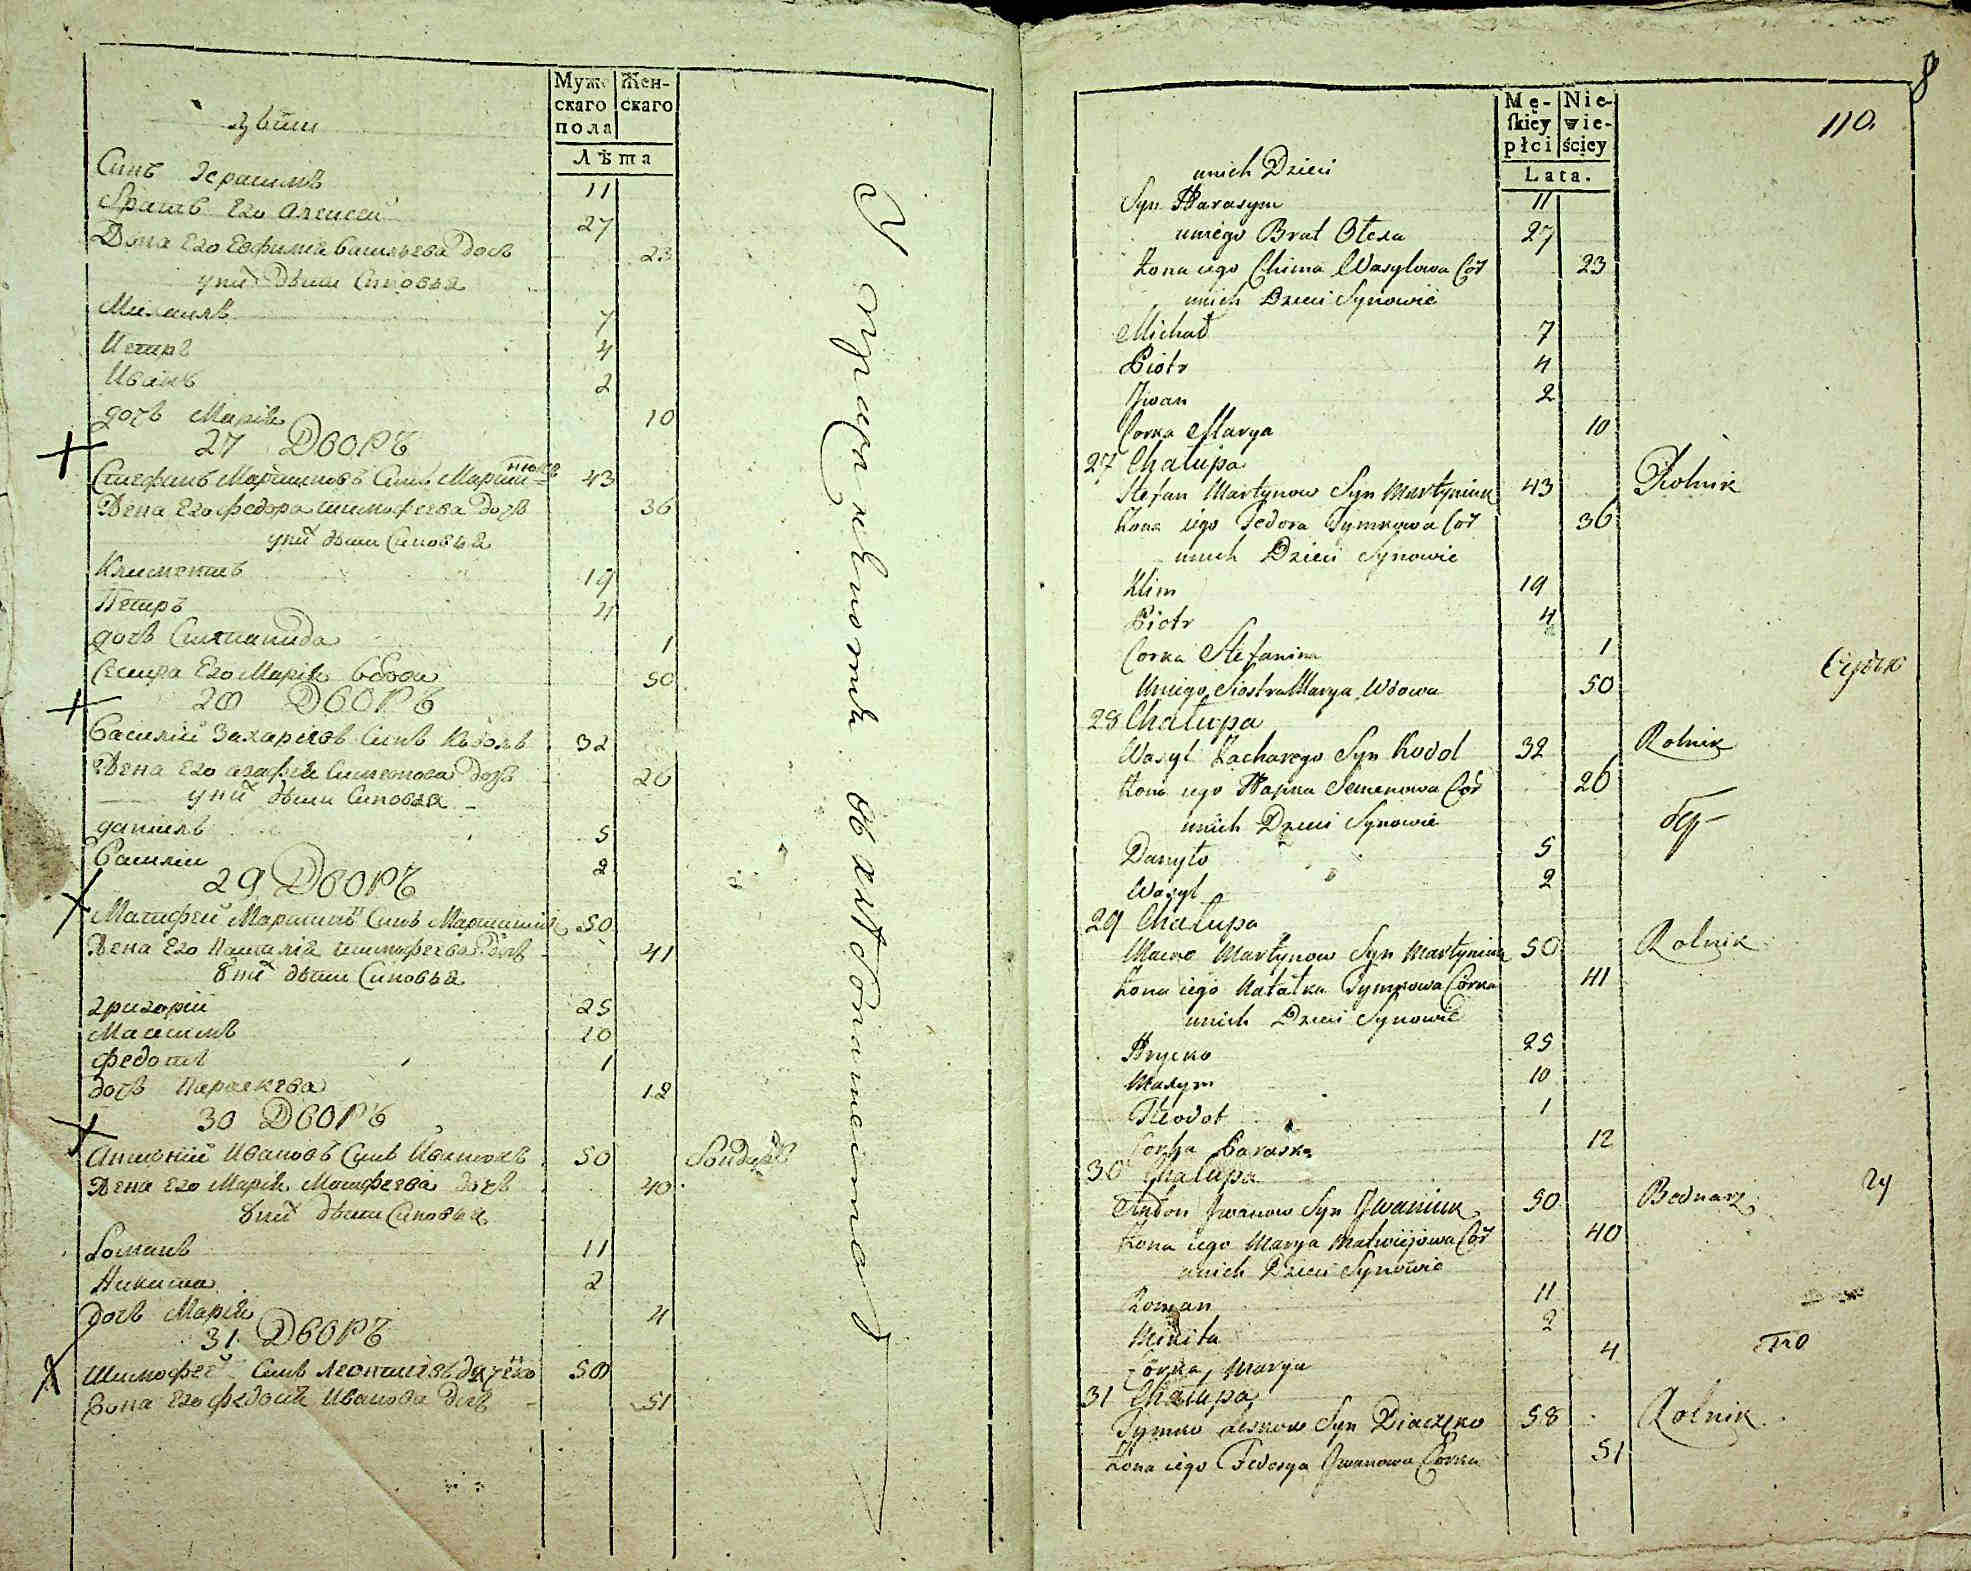 Мужскаго пола
Женскаго
Лѣта
Синъ Герасимъ 11
Братъ Его Алексей 27
Жена Его Евфимія Васильева Дочь 23
у них дѣти Синовья
Михаилъ 7
Петръ 4
Иванъ 2
дочь Марія 10
27 Дворъ
Стефанъ Мартиновъ Синъ Мартинюкъ 43
Жена Его федора тимофеева Дочь 36
у них дѣти Синовья
Климентъ 19
Петръ 4
дочь 1
Сестра Его Марія вдова 50
28 Дворъ
Василий Захаріевъ Синъ Коволь 32
Жена Его агафія Симеонова Дочь 26
у них дѣти Синовья
даниилъ 5
Василий 2
29 Дворъ
Матифей Мартинъ Синъ Мартиниюк 50
Жена Его Наталія тимофеева Дочь 41
В них дѣти Синовья
григорий 25
Максимъ 10
федотъ 1
дочь Параскева 12
30 Дворъ
Антоний Ивановъ Синъ Иванюкъ 50 Бондарь
Жена Его Марія Матфеева дочь 40
В них дѣти Синовья
Романъ 11
Никита 2
дочь Марія 4
31 Дворъ
Тимофей Синъ Леонтиевъ дячено 58
Жена Его федосія Иванова Дочь 51
8
110.
Męſkiey płci
Niewieściey
Lata.
unich Dzieci
Syn Harasym 11
uniego Brat Olexa 27
Żona iego Chima Wasylowa Cór 23
unich Dzieci Synowie
Michał 7
Piotr 4
Jwan 2
Corka Marya 10
27 Chałupa
Stefan Martynow Syn Martyniuk 43 Rolnik
Żona iego Fedora Tymkowa Cór 36
unich Dzieci Synowie
Klim 19
Piotr 4
Corka Stefanina 1
Uniego Siostra Marya Wdowa 50
28 Chałupa
Wasyl Zacharego Syn Kovol 32 Rolnik
Żona iego Hapka Semenowa Cór 26
unich Dzieci Synowie
Danyło 5
Wasyl 2
29 Chałupa
Macwe Martynow Syn Martyniuk 50 Rolnik
Żona iego Natałka Tymkowa Córka 41
unich Dzieci Synowie
Hrycko 25
Maxym 10
Theodot 1
Corka Paraska 12
30 Chałupa
Andon Jwanow Syn Jwaniuk 50 Bednarz
Żona iego Marya Matwiejowa Cór 40
unich Dzieci Synowie
Roman 11
Mikita 2
Córka Marya 4
31 Chałupa
Tymko Leskow Syn Diaczko 58 Rolnik
Żona iego Fedosya Jwanowa Corka 51